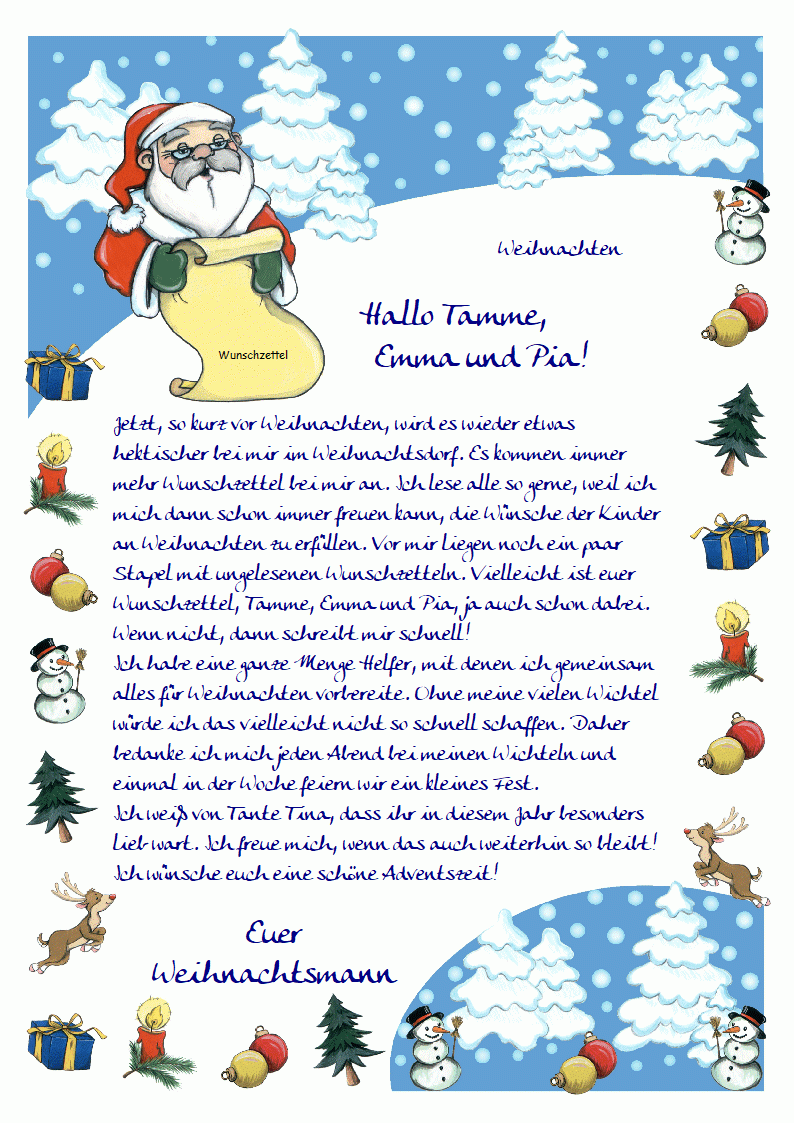 Weihnachten
Hallo Tamme,
Emma und Pia!
Wunschzettel
Jetzt, so kurz vor Weihnachten, wird es wieder etwas
hektischer bei mir im Weihnachtsdorf. Es kommen immer
mehr Wunschzettel bei mir an. Ich lese alle so gerne, weil ich
mich dann schon immer freuen kann, die Wünsche der Kinder
an Weihnachten zu erfüllen. Vor mir liegen noch ein paar
Stapel mit ungelesenen Wunschzetteln. Vielleicht ist euer
Wunschzettel, Tamme, Emma und Pia, ja auch schon dabei.
Wenn nicht, dann schreibt mir schnell!
Ich habe eine ganze Menge Helfer, mit denen ich gemeinsam
alles für Weihnachten vorbereite. Ohne meine vielen Wichtel
würde ich das vielleicht nicht so schnell schaffen. Daher
bedanke ich mich jeden Abend bei meinen Wichteln und
einmal in der Woche feiern wir ein kleines Fest.
Ich weiß von Tante Tina, dass ihr in diesem Jahr besonders
lieb wart. Ich freue mich, wenn das auch weiterhin so bleibt!
Ich wünsche euch eine schöne Adventszeit!
Euer
Weihnachtsmann